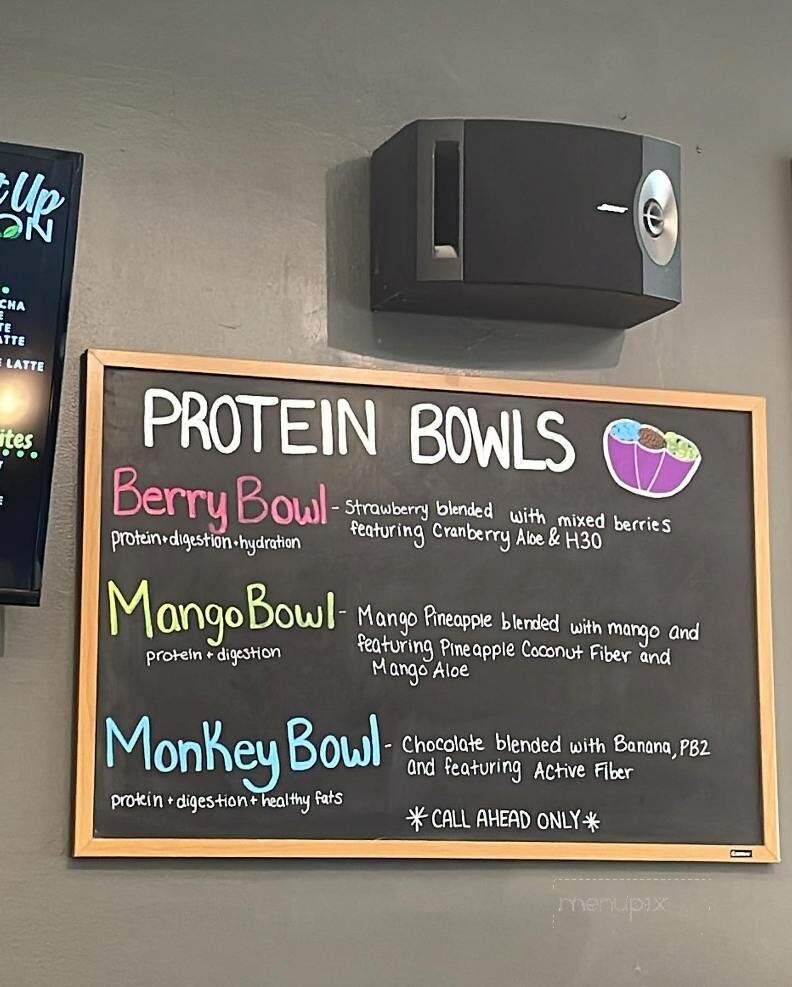 t Up
ON
CHA
E
TE
ATTE
E LATTE
ites
BOSE
PROTEIN BOWLS
Berry Bowl - Strawberry blended with mixed berries
protein+digestion+hydration featuring Cranberry Aloe & H30
Mango Bowl - Mango Pineapple blended with mango and
protein + digestion featuring Pineapple Coconut Fiber and
Mango Aloe
Monkey Bowl - Chocolate blended with Banana, PB2
and featuring Active Fiber
protein + digestion + healthy fats
*CALL AHEAD ONLY*
menupix